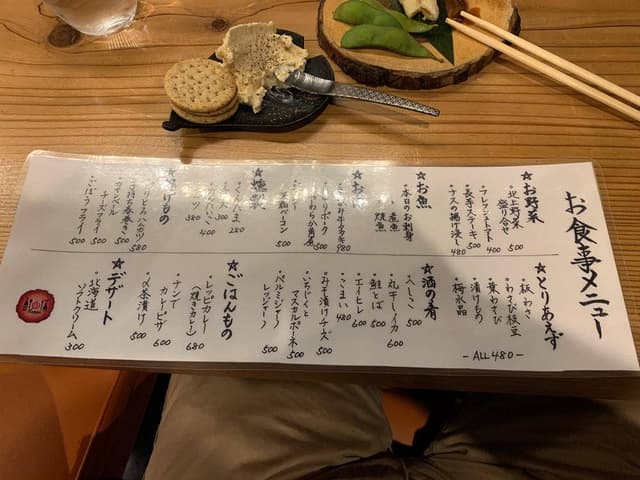 お食事メニュー
★お野菜
・北上野菜盛り合せ 500
・フレッシュトマト 400
・長芋ステーキ 500
・ナスの揚げ浸し 480
★お魚
・本日のお刺身
煮魚
焼魚
★お
980
★燻製
280
300
400
・ベーコン 500
もの
580
500
・カマンベールチーズフライ 500
・ごぼうフライ 500
★とりあえず
・板わさ
・わさび枝豆
・葉わさび
・漬けもの
・梅水晶
-ALL480-
★酒の肴
・へしこ 500
・丸干しイカ 600
・鮭とば 500
・エイヒレ 600
・こまい 480
・みそ漬けチーズ 500
・いちじくとマスカルポーネ 500
・パルミジャーノレッジャーノ 500
★ごはんもの
(焼きカレー) 680
・ナンでカレーピザ 600
・お茶漬け 500
★デザート
・北海道ソフトクリーム 300